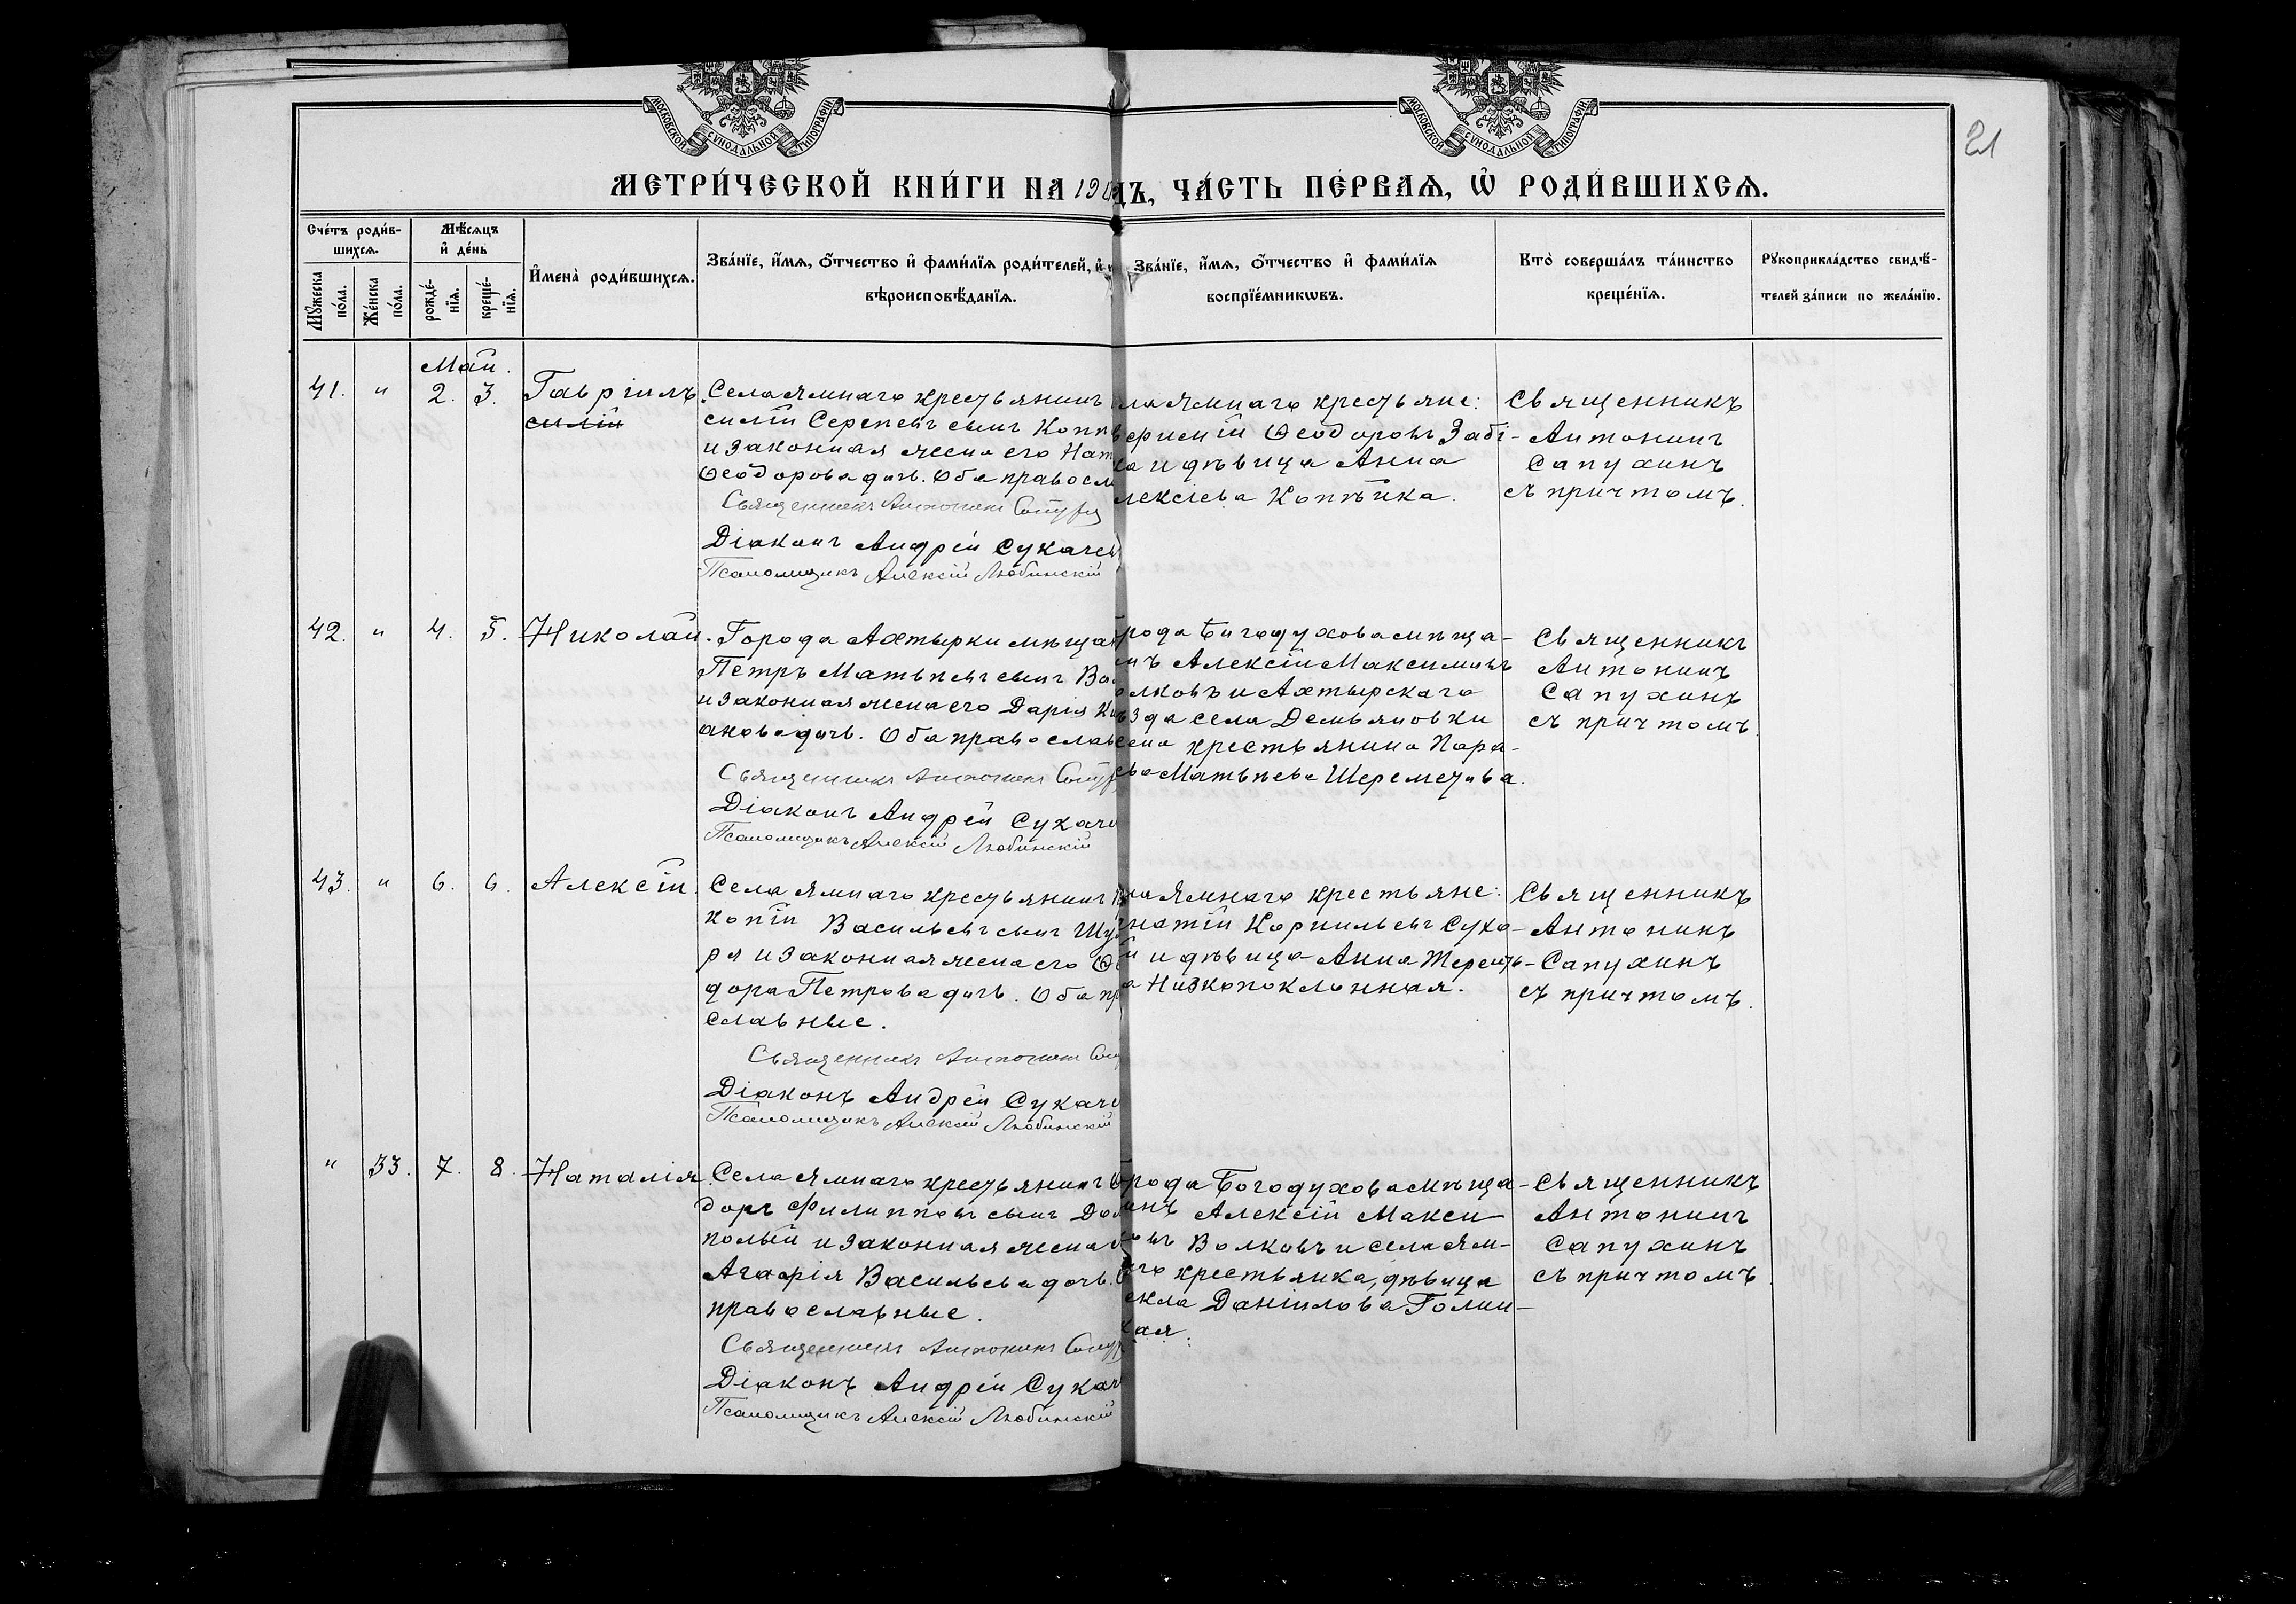 МОСКОВСКОЙ СѴНОДАЛЬНОЙ ТИПОГРАФІИ
МОСКОВСКОЙ СѴНОДАЛЬНОЙ ТИПОГРАФІИ
21
МЕТРИ́ЧЕСКОЙ КНИ́ГИ НА 19 ДЪ, ЧА́СТЬ ПЕ́РВАѦ, Ѡ҆ РОДИ́ВШИХСѦ.
Сче́тъ роди́в-
шихсѧ.
Мꙋ́жеска по́ла.
Же́нска по́ла.
Мѣ́сѧцъ и҆ де́нь
рожде́-нїѧ.
креще́-нїѧ.
И҆мена̀ роди́вшихсѧ.
Зва́нїе, и҆́мѧ, ѻ҆́тчество и҆ фами́лїѧ роди́телей, и҆
вѣроисповѣ́данїѧ.
Зва́нїе, и҆́мѧ, ѻ҆́тчество и҆ фами́лїѧ
воспрїе́мникѡвъ.
Кто̀ соверша́лъ та́инство
креще́нїѧ.
Рꙋкоприкла́дство свидѣ́-
телей за́писи по жела́нїю.
Май.
41. " 2. 3. Гавріилъ
силій
Села Ямнаго крестьянинъ
силій Сергеевъ сынъ Копѣ
и законная жена его Нат
Ѳеодорова дочь. Оба правосл
Священникъ Антонинъ Сапух
Діаконъ Андрей Сукачев
Псаломщикъ Алексій Любинскій
ла Ямнаго крестьяне:
фимій Ѳеодоровъ Забі-
ка и дѣвица Анна
лексіева Копѣйка.
Священникъ
Антонинъ
Сапухинъ
съ причтомъ.
42. " 4. 5. Николай.
Города Ахтырки мѣщан
Петръ Матвѣевъ сынъ Во
и законная жена его Дарія
анова дочь. Оба православ
Священникъ Антонинъ Сапух
Діаконъ Андрей Сукаче
Псаломщикъ Алексій Любинскій
рода Богодухова мѣща-
нъ Алексій Максимовъ
олковъ и Ахтырскаго
ѣзда села Демьяновки
жена крестьянина Пара-
ева Матвѣева Шереметьева.
Священникъ
Антонинъ
Сапухинъ
съ причтомъ.
43. " 6. 6. Алексій.
Села Ямнаго крестьянинъ
копій Васильевъ сынъ
ря и законная жена его Ѳе
дора Петрова дочь. Оба пр
славные.
Священникъ Антонинъ Сап
Діаконъ Андрей Сукаче
Псаломщикъ Алексій Любинскій
ла Ямнаго крестьяне:
гнатій Корнильевъ Сухо-
й и дѣвица Анна Терентье-
а Низкопоклонная.
Священникъ
Антонинъ
Сапухинъ
съ причтомъ.
" 33. 7. 8. Наталія.
Села Ямнаго крестьянинъ Ѳ
доръ Филипповъ сынъ До
полый и законная жена
Агафія Васильева дочь. О
православные.
Священникъ Антонинъ Сапух
Діаконъ Андрей Сукач
Псаломщикъ Алексій Любинскій
рода Богодухова мѣща-
инъ Алексій Макси-
овъ Волковъ и села Ям-
аго крестьянка, дѣвица
екла Даніилова Голин-
кая.
Священникъ
Антонинъ
Сапухинъ
съ причтомъ.